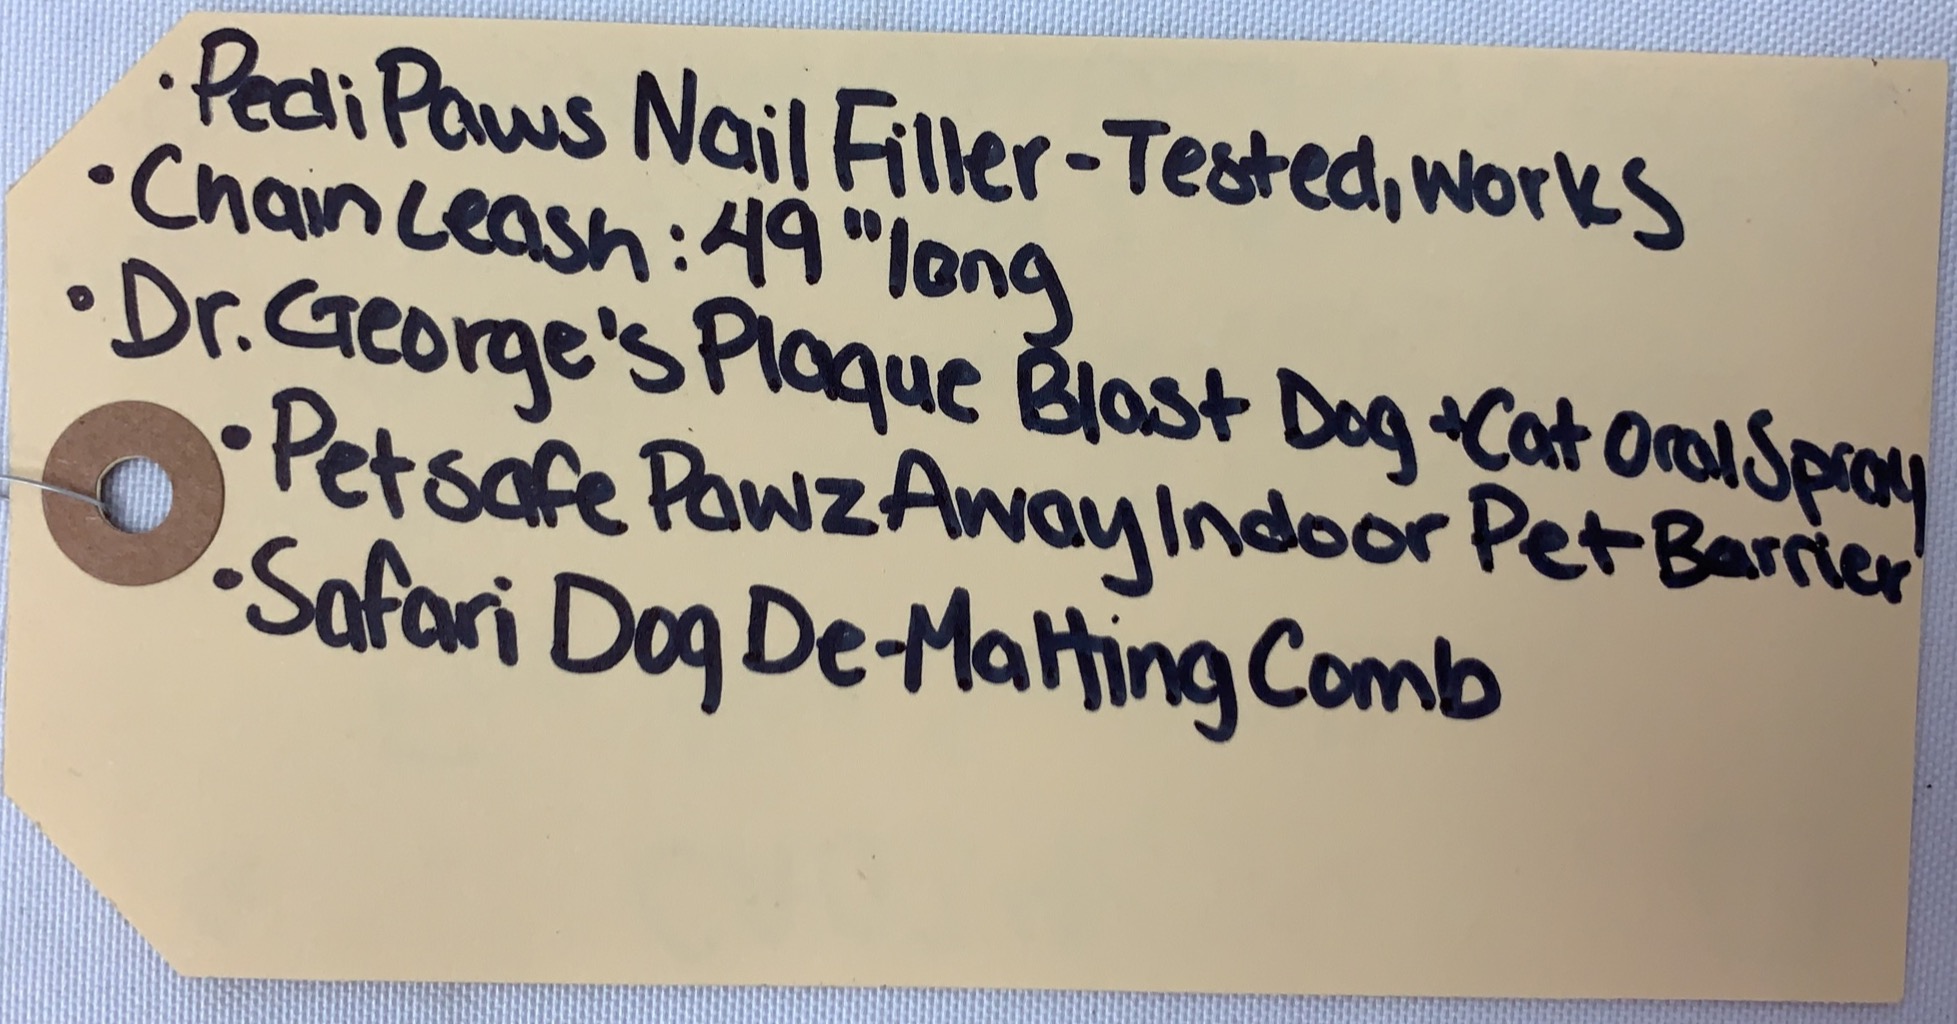 · Pedi Paws Nail Filler - Tested, works
· Chain Leash: 49" long
· Dr. George's Plaque Blast Dog + Cat Oral Spray
· Petsafe Pawz Away Indoor Pet Barrier
· Safari Dog De-Matting Comb